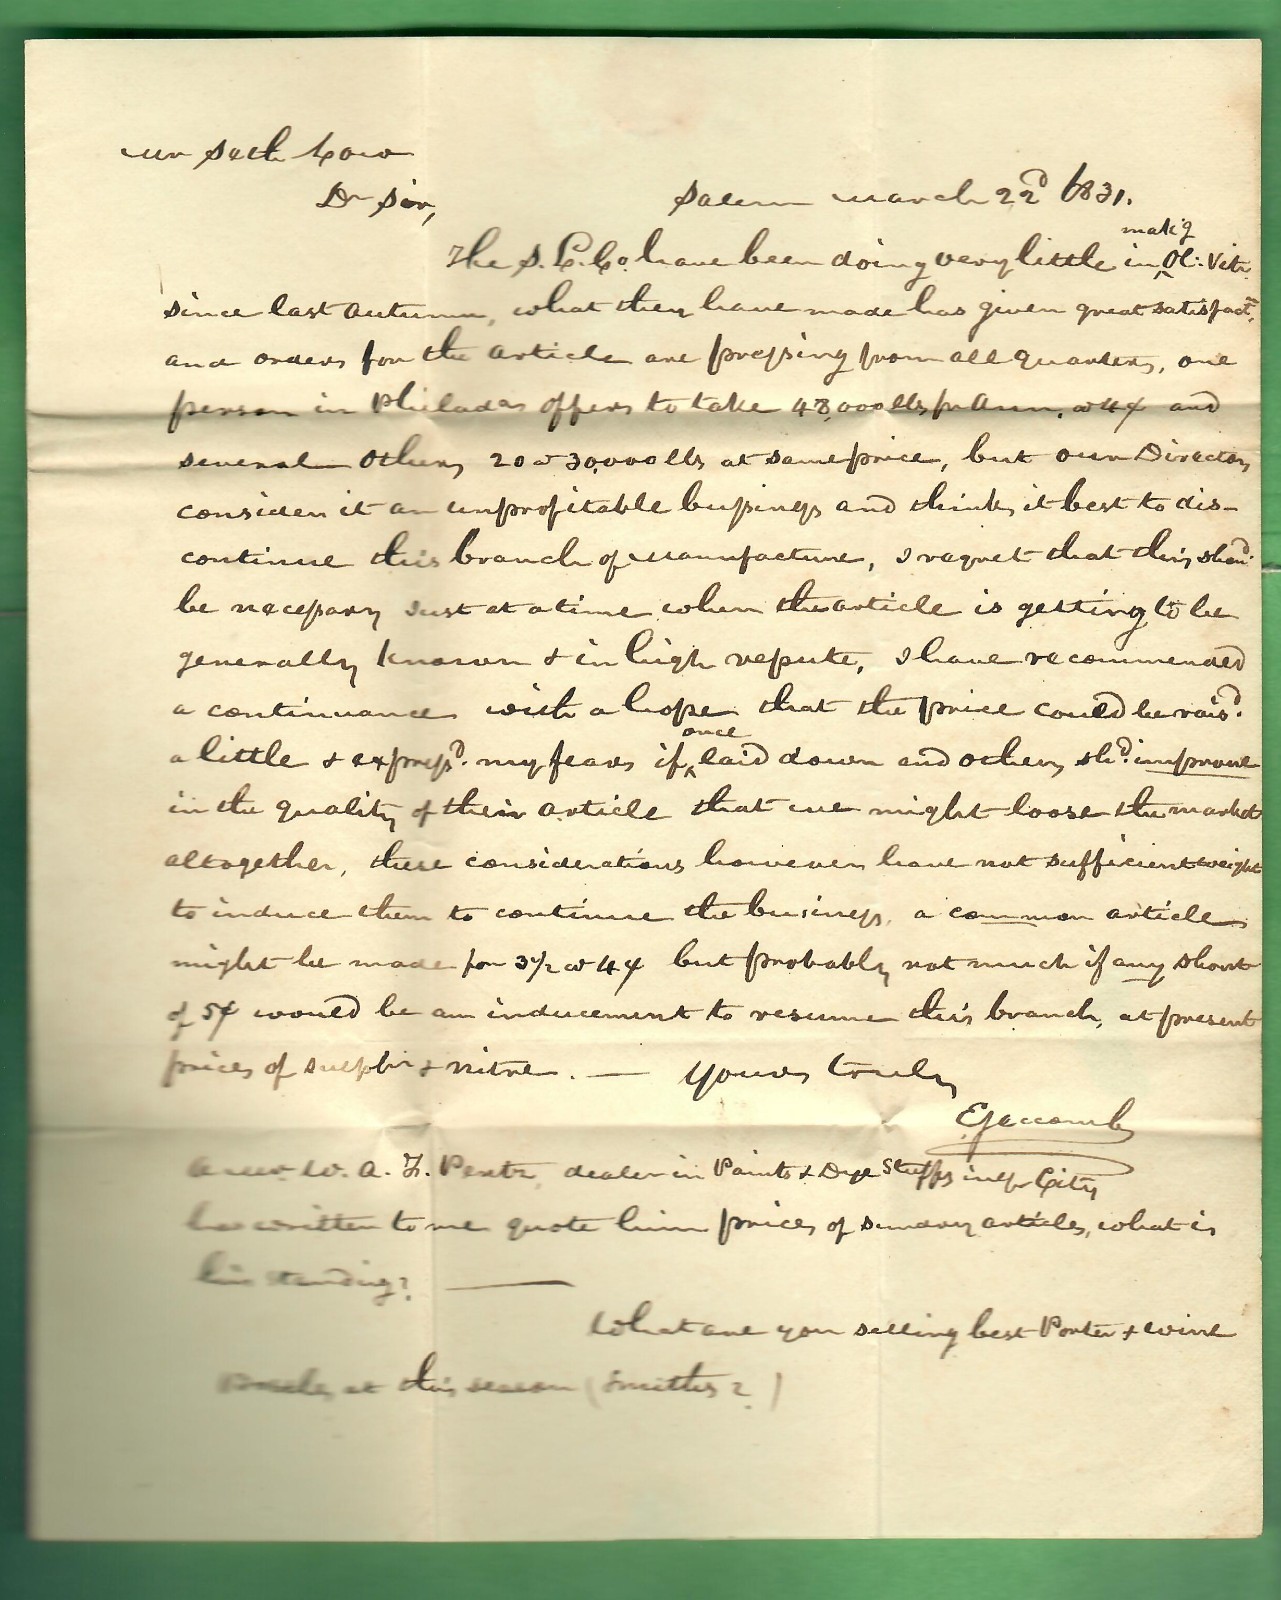 Mr Seth Low
Dr Sir,
Salem March 22d 1831.
The S. L. Co. have been doing very little in makg Ol: Vitr:
since last Autumn, what they have made has given great satisfactn,
and orders for the Article are pressing from all quarters, one
person in Philada offers to take 48,000 lbs pr Ann. @ 4¢ and
several others 20 @ 30,000 lbs at same price, but our Directors
consider it an unprofitable business and thinks it best to dis-
continue this branch of Manufacture, I regret that this shoud:
be necessary Just at a time when the article is getting to be
generally known & in high repute, I have recommended
a continuance with a hope that the price could be raisd.
a little & expressd. my fears if once laid down and others shd. improve
in the quality of their Article that we might loose the market
altogether, these considerations however have not sufficient weight
to induce them to continue the business, a common article
might be made for 3½ @ 4¢ but probably not much if any short
of 5¢ would be an inducement to resume this branch, at present
prices of sulphr & nitre. — Yours truly
E Jaccomb
A Mr. W. A. F. Pentz, dealer in Paints & Dye Stuffs in yr City
has written to me quote him prices of sundry articles, what is
his standing? —
What are you selling best Porter & wine
at this season (Smiths?)